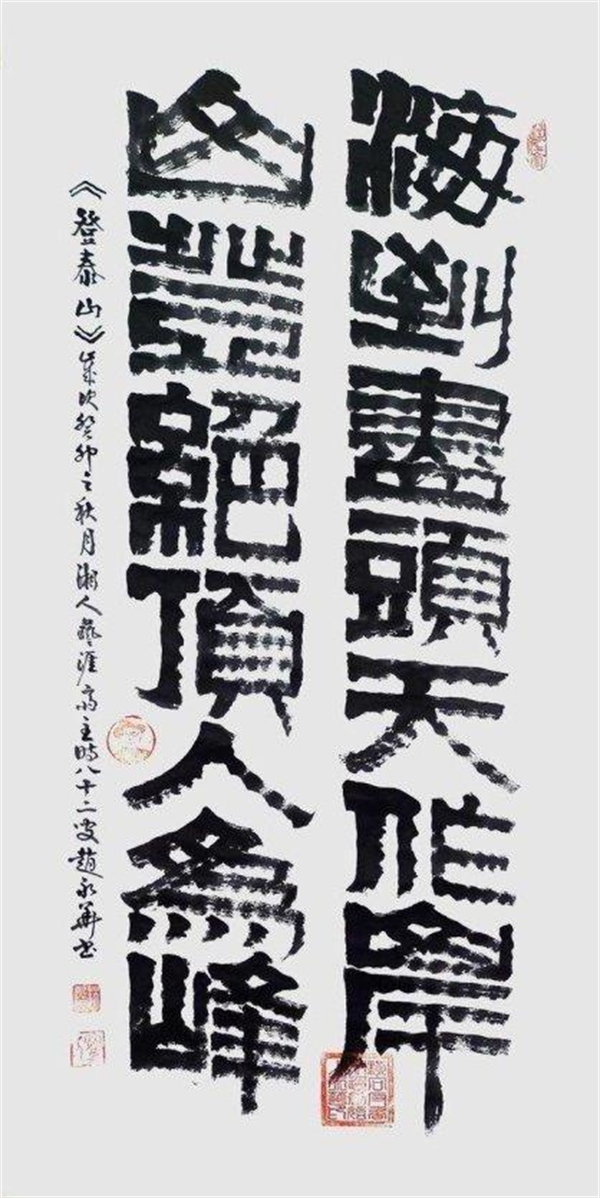 海到盡頭天作岸
山登絕頂人為峰
《登泰山》歲次癸卯之秋月湘人藝涯齋主時八十二叟趙永華書